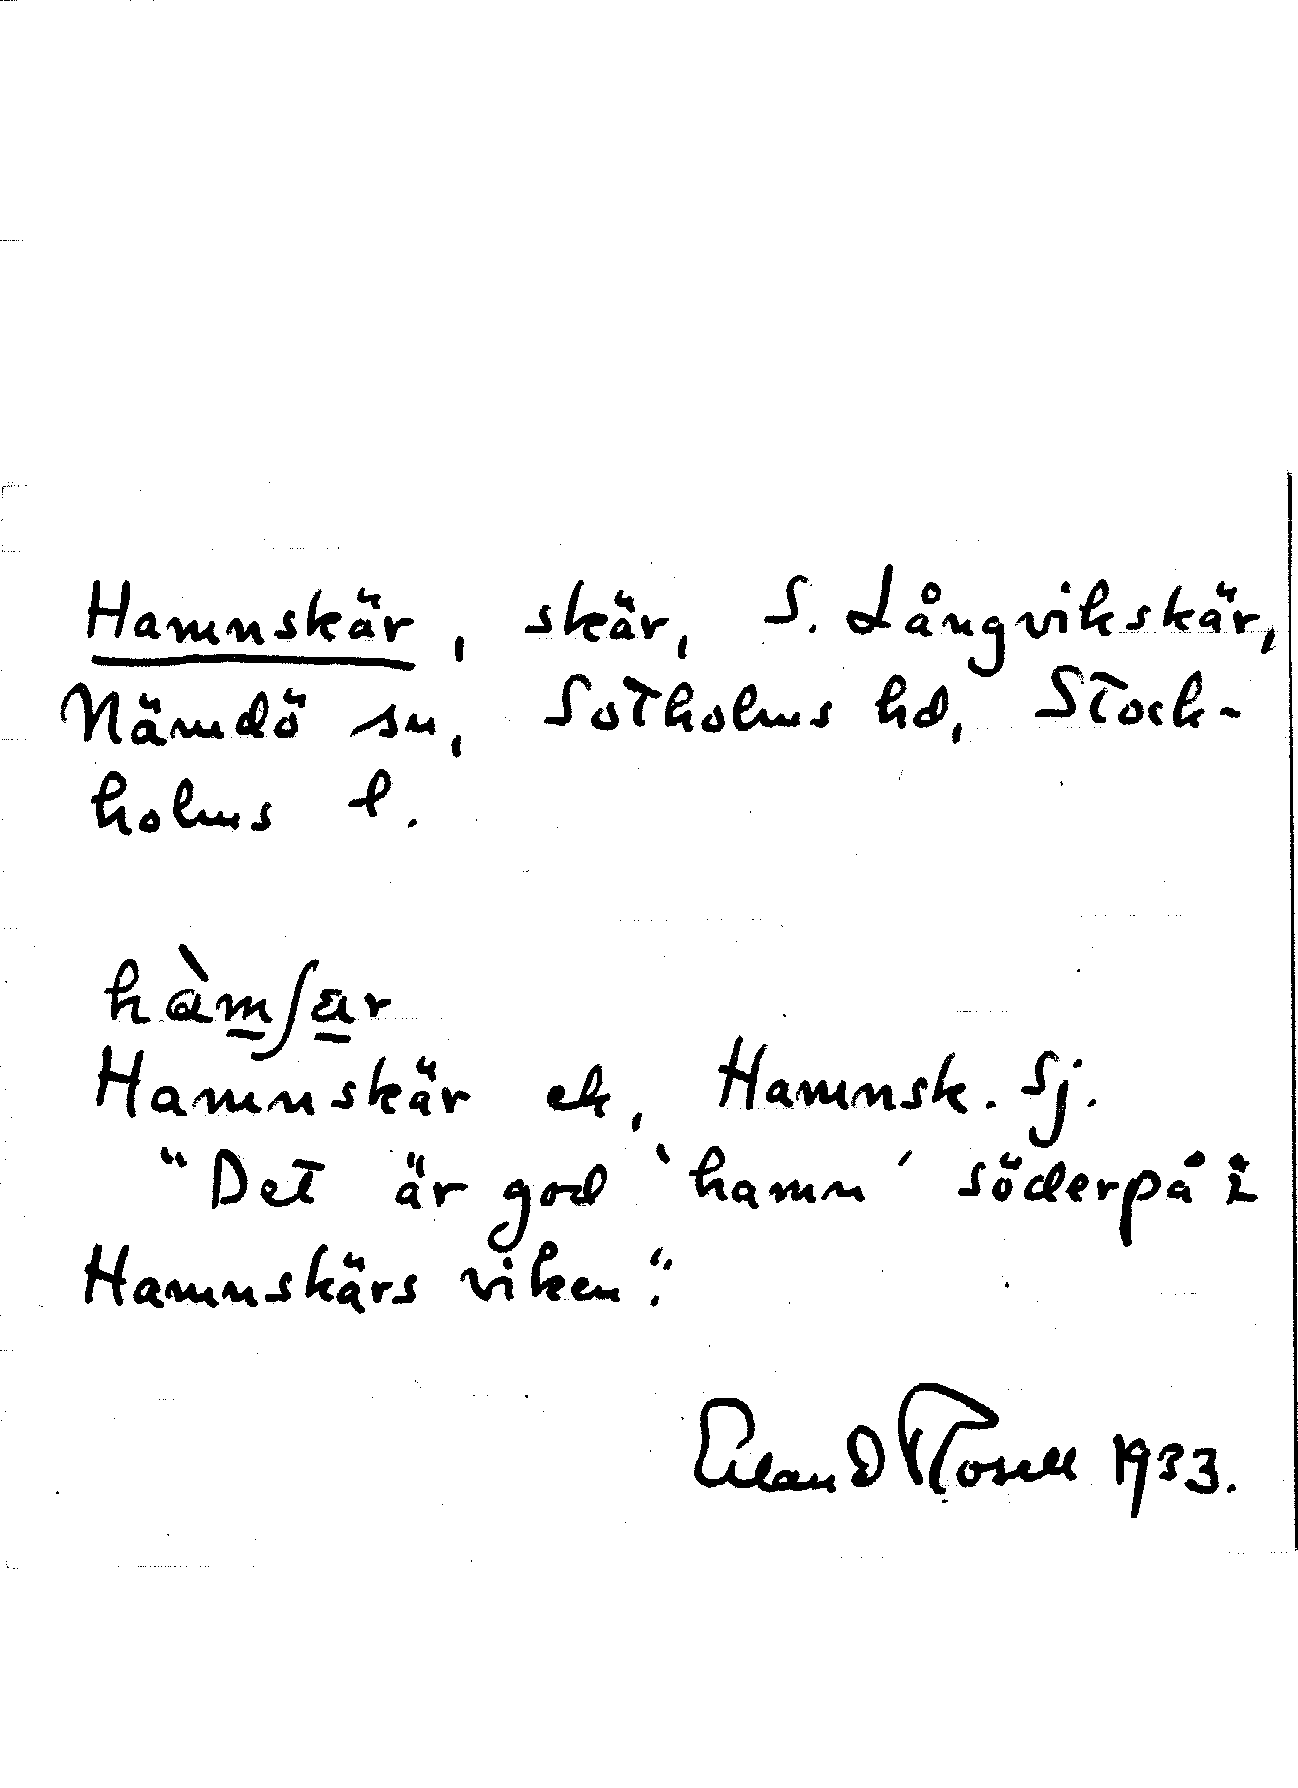 Hamnskär, skär, S. Långvikskär,
Nämdö sn, Sotholms hd, Stock-
holms l.
hàmʃär
Hamnskär ek, Hamnsk. Sj.
"Det är god 'hamn' söderpå i
Hamnskärs viken."
Erland Rosell 1933.